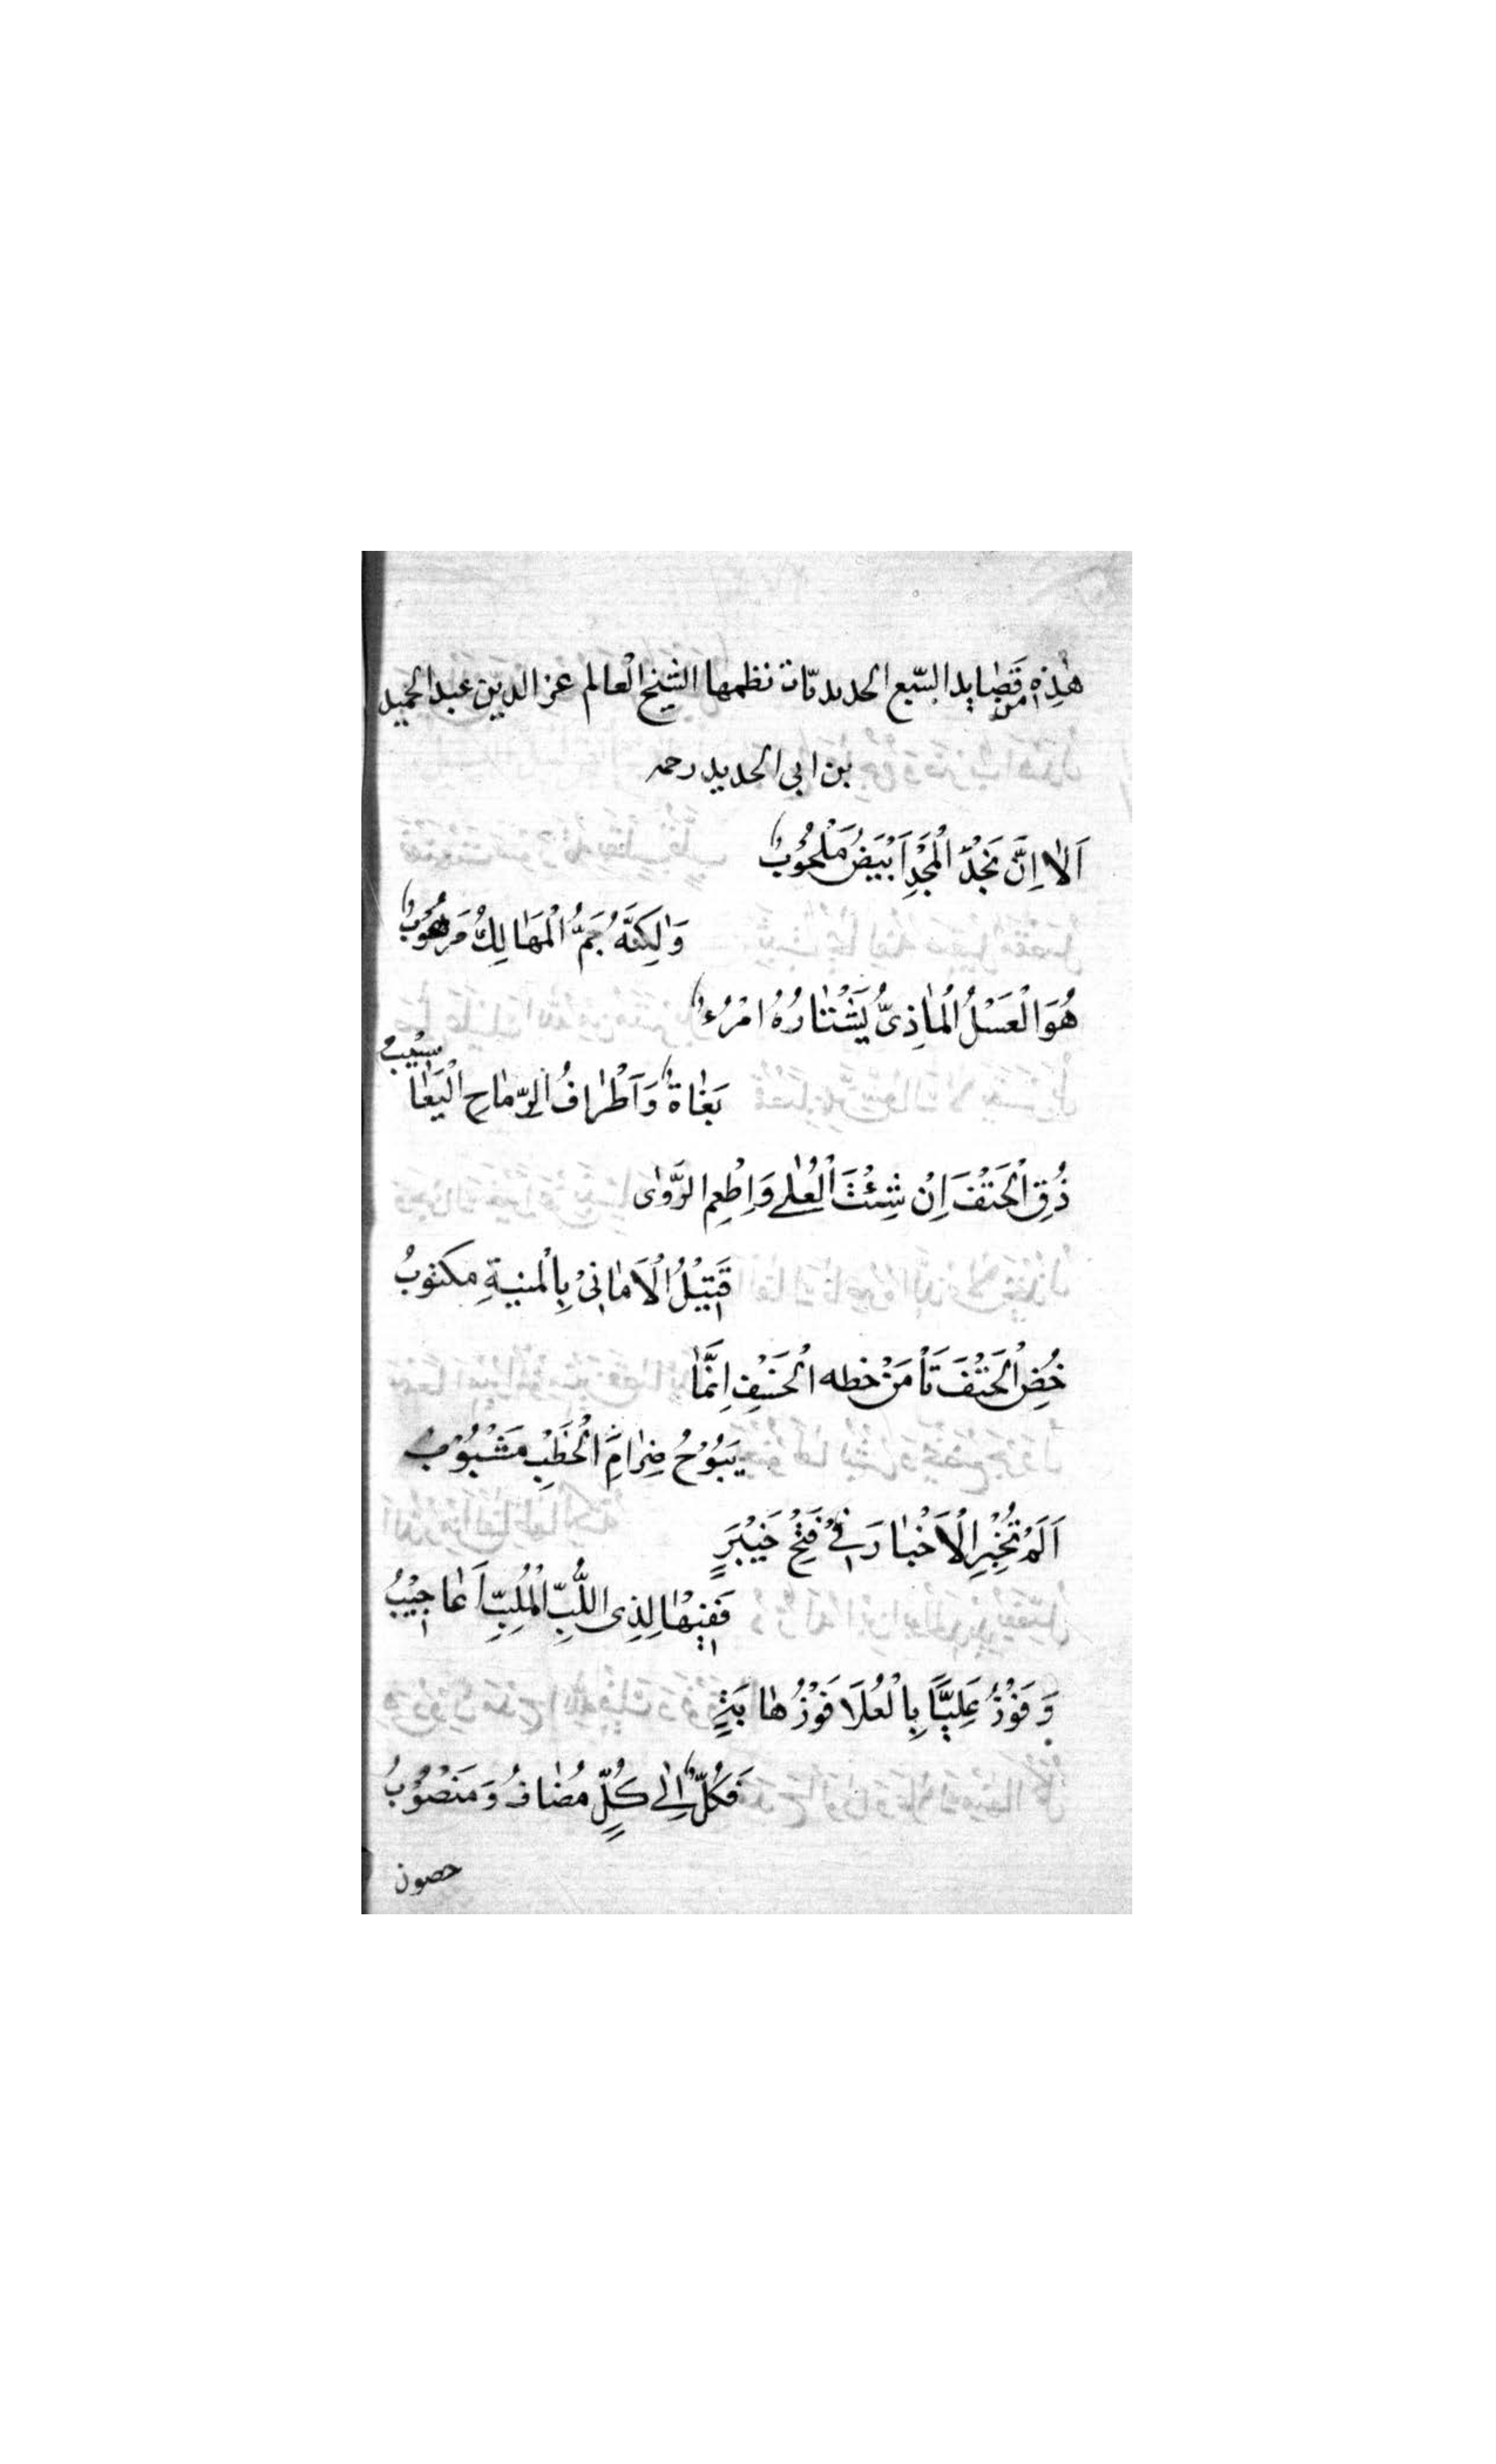 هٰذِهِ مِنْ قَصٰايد السّبع الحديديّات نظمها الشيخ العالم عز الدين عبد الحميد
بن ابى الحديد رحمه
اَلاٰ اِنَّ نَجْدَ الْمَجْدِ اَبْيَضُ مَلْحُوْبٌ
وَلٰكِنَّهُ جَمُّ الْمَهٰالِكِ مَرْهُوْبٌ
هُوَ الْعَسَلُ الْمٰاذِىُّ يَشْتٰارُهُ امْرُءٌ
بَغٰاهُ وَاَطْرٰافُ الرِّمٰاحِ الْيَعٰا
سِيْبُ
ذُقِ الْحَتْفَ اِنْ شِئْتَ الْعُلٰى وَاِطْعِمِ الرَّدٰى
قَتِيْلُ الْاَمٰانِىْ بِالْمنيةِ مكتوبُ
خُضِ الْحَتْفَ تَأْمَنْ خطه الْخَسْفِ اِنَّمٰا
يَبُوْحُ ضِرٰامُ الْخَطْبِ مَشْبُوْبُ
اَلَمْ تُخْبَرِ الْاَخْبٰارَ فِىْ فَتْحِ خَيْبَرٍ
فَفِيْهٰا لِذِى اللُّبِّ الْمُلِبِّ اَعٰاجِيْبُ
وَ فَوْزُ عَلِيًّا بِالْعُلَا فَوْزُهٰا بَةٍ
فَكُلٌّ اِلٰى كُلٍّ مُضٰافُ وَ مَنْصُوْبُ
حصون